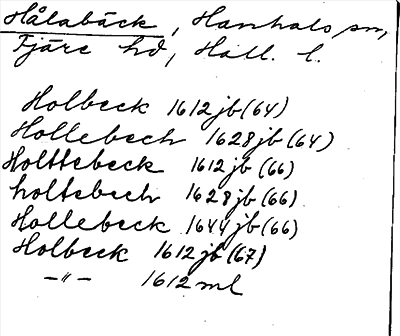 Hålabäck, Hanhals sn,
Fjäre hd, Hall. l.
Holbeck 1612 jb (64)
Hollebech 1628 jb (64)
Holttebeck 1612 jb (66)
holtebech 1628 jb (66)
Hollebeck 1644 jb (66)
Holbeck 1612 jb (67)
—"— 1612 ml